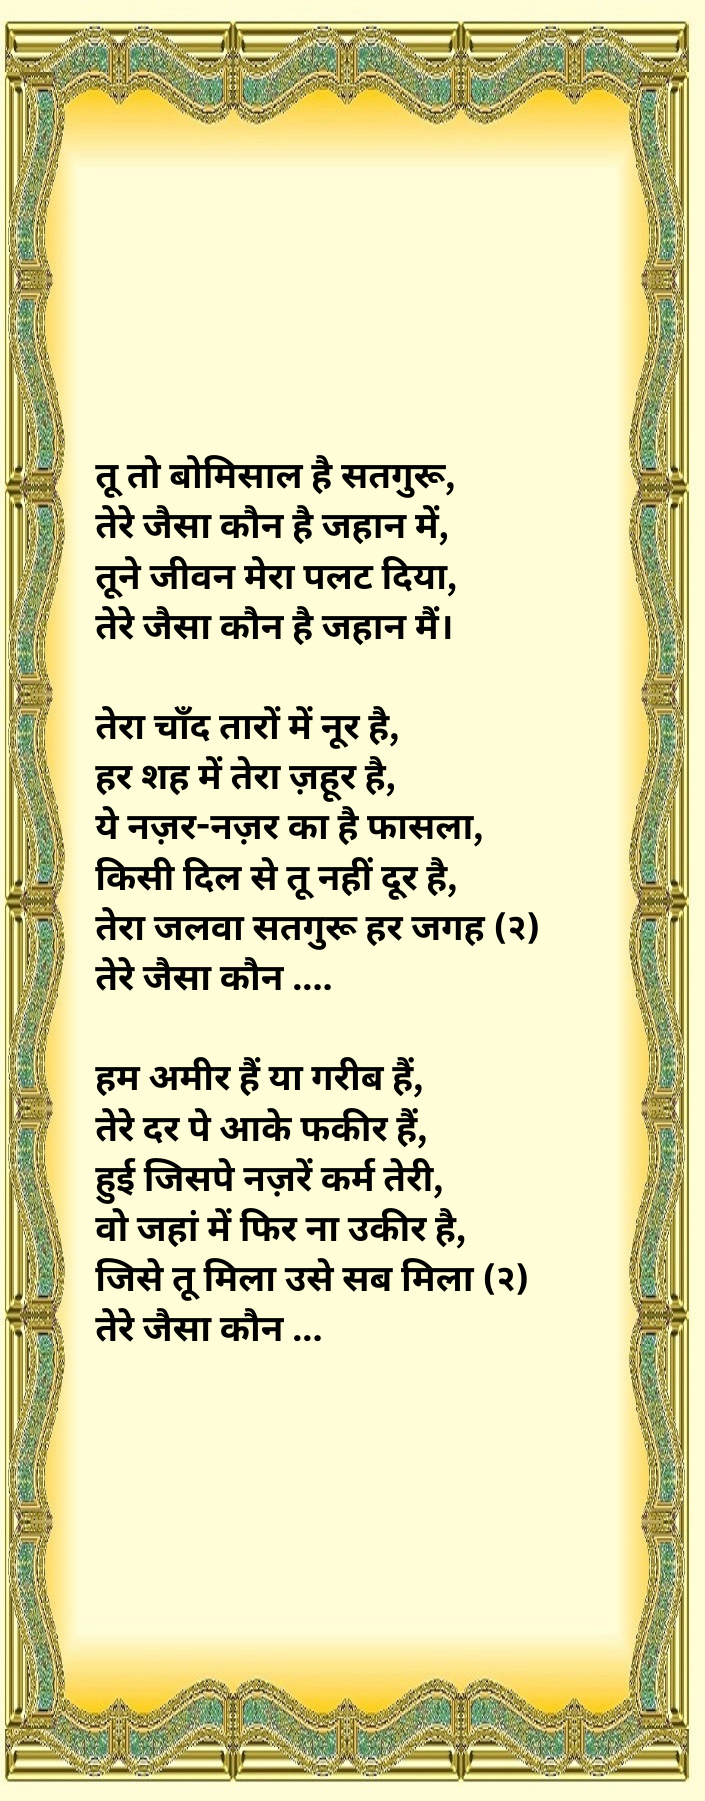 तू तो बोमिसाल है सतगुरू,
तेरे जैसा कौन है जहान में,
तूने जीवन मेरा पलट दिया,
तेरे जैसा कौन है जहान मैं।
तेरा चाँद तारों में नूर है,
हर शह में तेरा ज़हूर है,
ये नज़र-नज़र का है फासला,
किसी दिल से तू नहीं दूर है,
तेरा जलवा सतगुरू हर जगह (२)
तेरे जैसा कौन ....
हम अमीर हैं या गरीब हैं,
तेरे दर पे आके फकीर हैं,
हुई जिसपे नज़रें कर्म तेरी,
वो जहां में फिर ना उकीर है,
जिसे तू मिला उसे सब मिला (२)
तेरे जैसा कौन ...